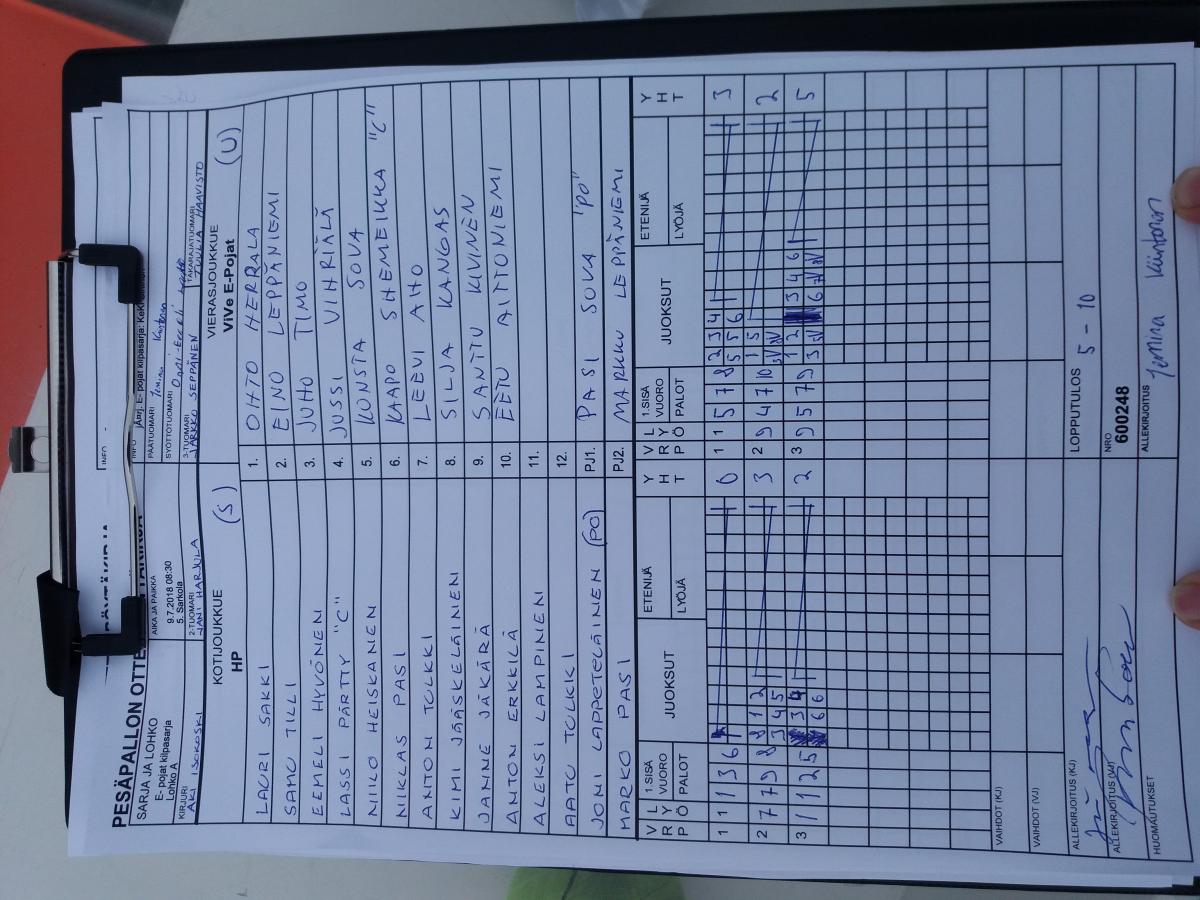 PESÄPALLON OTTE
SARJA JA LOHKO
E- pojat kilpasarja
Lohko A
AIKA JA PAIKKA
9.7.2018 08:30
5. Sarkola
INFO
INFO
PÄÄTUOMARI
SYÖTTÖTUOMARI
KIRJURI
AKI ISOKOSKI
2-TUOMARI
JANI HARJULA
3-TUOMARI
JARKKO SEPPÄNEN
TAKARAJATUOMARI
TUULIA HAAVISTO
KOTIJOUKKUE (S)
HP
VIERASJOUKKUE (U)
ViVe E-Pojat
LAURI SAKKI 1. OHTO HERRALA
SAMU TILLI 2. EINO LEPPÄNIEMI
EEMELI HYVÖNEN 3. JUHO TIMO
LASSI PÄRTTY "C" 4. JUSSI VIHRIÄLÄ
NIILO HEISKANEN 5. KONSTA SOVA
NIKLAS PASI 6. KAAPO SHEMEIKKA "C"
ANTON TOLKKI 7. LEEVI AHO
KIMI JÄÄSKELÄINEN 8. SILJA KANGAS
JANINE JÄKÄRÄ 9. SANTTU KIVINEN
ANTON ERKKILÄ 10. EETU AITTONIEMI
ALEKSI LAMPINEN 11.
AATU TOLKKI 12.
JONI LAPPETELÄINEN (PO) PJ1. PASI SOVA "PO"
MARKO PASI PJ2. MARKKU LEPPÄNIEMI
VRP LYÖ 1.SISÄ VUORO PALOT JUOKSUT ETENIJÄ LYÖJÄ YHT VRP LYÖ 1.SISÄ VUORO PALOT JUOKSUT ETENIJÄ LYÖJÄ YHT
1 1 1 3 6 0 1 1 5 7 8 2 3 4 3
5 5 6
2 7 7 9 8 8 1 2 3 2 9 4 7 10 1 5 2
3 4 5
3 1 1 2 5 3 4 2 3 9 5 7 9 1 2 3 4 6 5
6 6
VAIHDOT (KJ)
VAIHDOT (VJ)
ALLEKIRJOITUS (KJ)
LOPPUTULOS 5 - 10
ALLEKIRJOITUS (VJ)
NRO
600248
HUOMAUTUKSET
ALLEKIRJOITUS